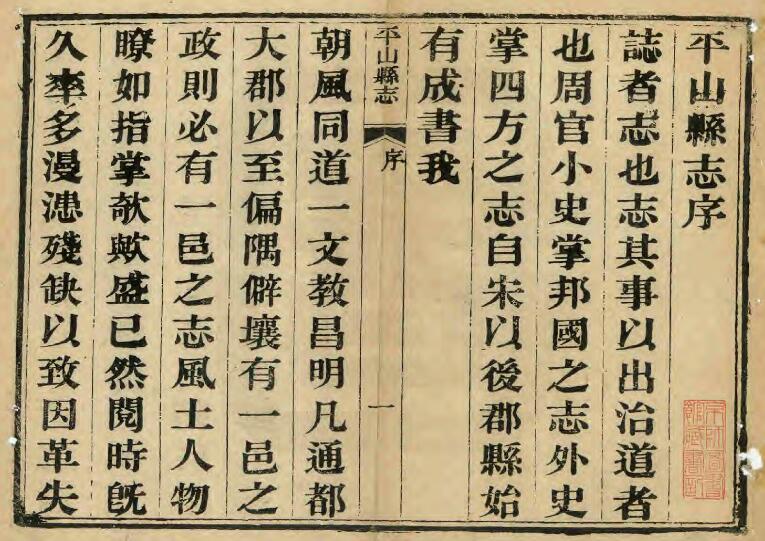 平山縣志序
誌者志也志其事以出治道者
也周官小史掌邦國之志外史
掌四方之志自宋以後郡縣始
有成書我
平山縣志
序
一
朝風同道一文教昌明凡通都
大郡以至偏隅僻壤有一邑之
政則必有一邑之志風土人物
瞭如指掌欹歟盛已然閱時旣
久率多漫漶殘缺以致因革失